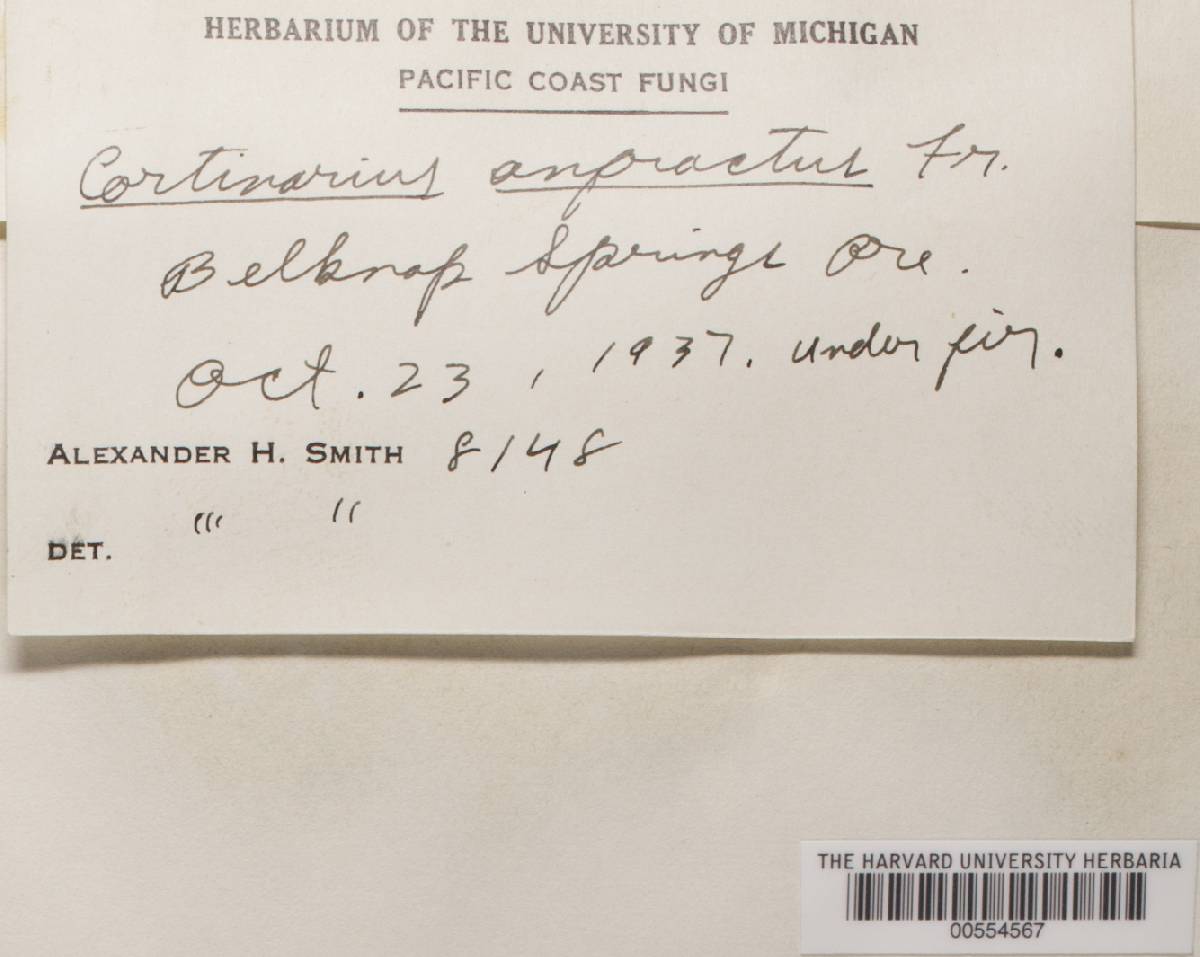 HERBARIUM OF THE UNIVERSITY OF MICHIGAN
PACIFIC COAST FUNGI
Cortinarius anfractus Fr.
Belknap Springs Ore.
Oct. 23, 1937. under fir.
ALEXANDER H. SMITH 8148
"' "
DET.
THE HARVARD UNIVERSITY HERBARIA
00554567